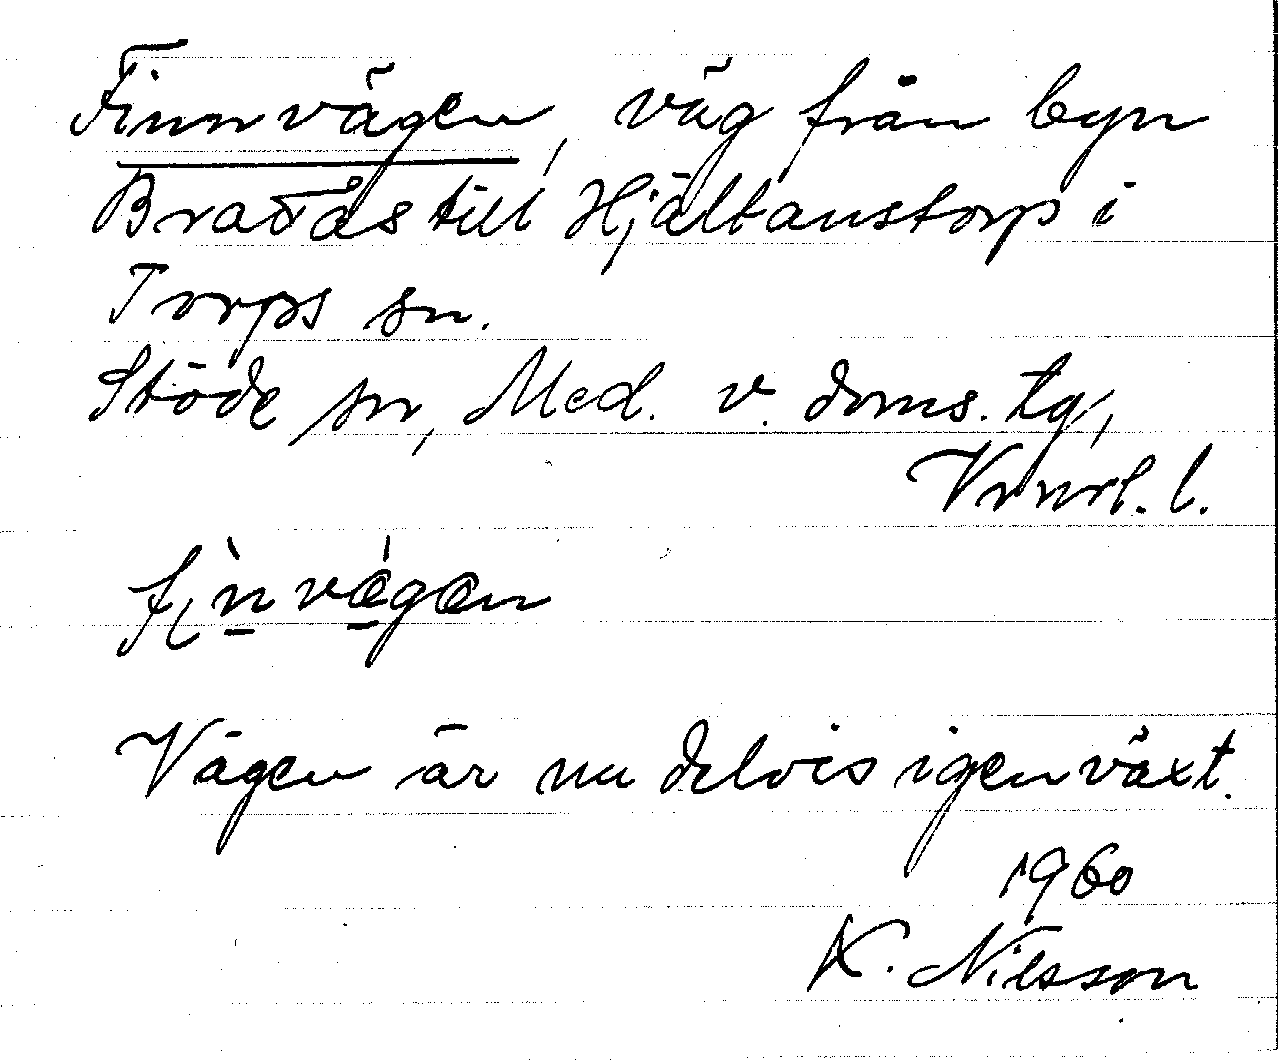 Finnvägen, väg från byn
Bradås till Hjältanstorp i
Torps sn.
Stöde sn, Med. v. doms. tg,
Vnnrl. l.
fi̠ǹvǽgæn
Vägen är nu delvis igenväxt.
1960
K. Nilsson